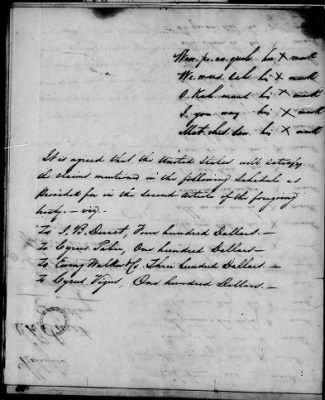 his X mark
his X mark
O. Kah. maus his X mark
I. you way his X mark
his X mark
It is agreed that the United States will satisfy
the claims mentioned in the following schedule as
provided for in the second article of the foregoing
treaty. — viz —
To J. B. Duret, Four hundred Dollars. —
To Cyrus Taber, One hundred Dollars —
To Ewing Walker & Co Three hundred Dollars. —
To Cyrus Vigus, One hundred Dollars. —